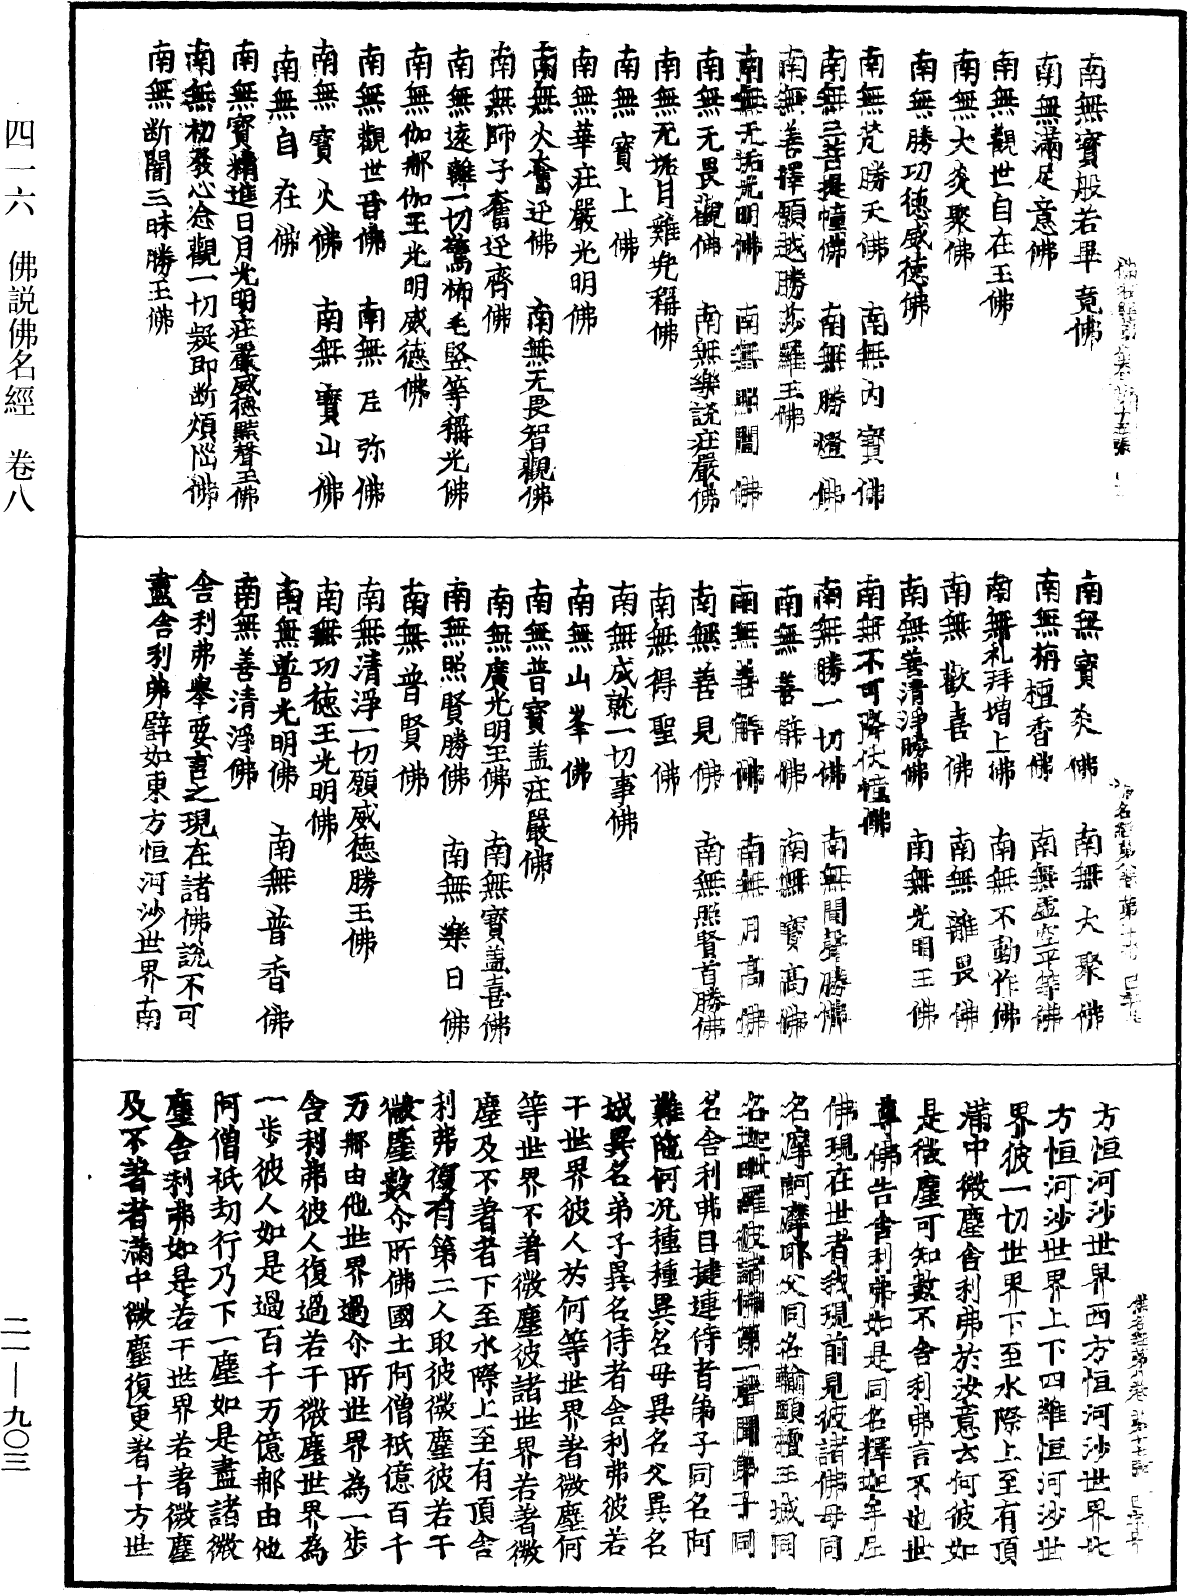 南無寶般若畢竟佛
南無滿足意佛
南無觀世自在王佛
南無大炎聚佛
南無勝功德威德佛
南無梵勝天佛　南無內寶佛
南無三菩提幢佛　南無勝燈佛
南無善擇願越勝莎羅王佛
南無无垢光明佛　南無照闇佛
南無无畏觀佛　南無樂說庄嚴佛
南無无垢月雞兠稱佛
南無寶上佛
南無華庄嚴光明佛
南無火奮迅佛　南無无畏智觀佛
南無師子奮迅齊佛
南無遠離一切驚怖毛竪等稱光佛
南無伽那伽王光明威德佛
南無觀世音佛　南無尼弥佛
南無寶火佛　南無寶山佛
南無自在佛
南無寶精進日月光明庄嚴威德照聲王佛
南無初發心念觀一切疑即断煩惱佛
南無断闇三昧勝王佛
南無寶炎佛　南無大聚佛
南無栴檀香佛　南無虛空平等佛
南無礼拜增上佛　南無不動作佛
南無歡喜佛　南無離畏佛
南無善清淨勝佛　南無光明王佛
南無不可降伏幢佛
南無勝一切佛　南無聞聲勝佛
南無善佛　南無寶高佛
南無善解佛　南無月高佛
南無善見佛　南無照賢首勝佛
南無得聖佛
南無成就一切事佛
南無山峯佛
南無普寶盖庄嚴佛
南無廣光明王佛　南無寶盖喜佛
南無照賢勝佛　南無樂日佛
南無普賢佛
南無清淨一切願威德勝王佛
南無功德王光明佛
南無普光明佛　南無普香佛
南無善清淨佛
舍利弗舉要言之現在諸佛說不可
盡舍利弗譬如東方恒河沙世界南
方恒河沙世界西方恒河沙世界北
方恒河沙世界上下四維恒河沙世
界彼一切世界下至水際上至有頂
滿中微塵舍利弗於汝意云何彼如
是微塵可知數不舍利弗言不也世
尊佛告舍利弗如是同名釋迦牟尼
佛現在世者我現前見彼諸佛母同
名摩訶摩耶父同名輸頭檀王城同
名迦毗羅彼諸佛第一聲聞弟子同
名舍利弗目揵連侍者弟子同名阿
難陁何况種種異名母異名父異名
城異名弟子異名侍者舍利弗彼若
干世界彼人於何等世界著微塵何
等世界不著微塵彼諸世界若著微
塵及不著者下至水際上至有頂舍
利弗復有第二人取彼微塵彼若干
微塵數尒所佛國土阿僧祇億百千
万那由他世界過尒所世界為一步
舍利弗彼人復過若干微塵世界為
一步彼人如是過百千万億那由他
阿僧祇劫行乃下一塵如是盡諸微
塵舍利弗如是若干世界若著微塵
及不著者滿中微塵復更著十方世
四一六　佛説佛名經　卷八
二一—九〇三